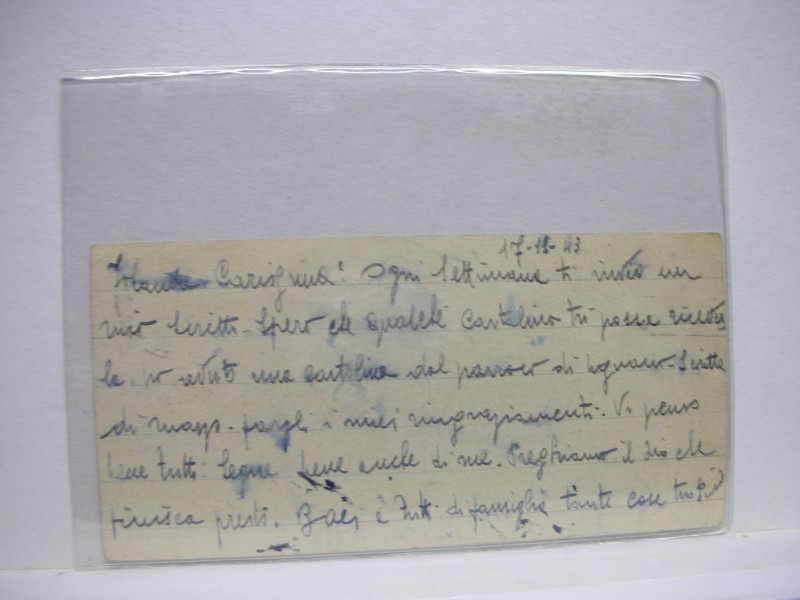 17-11-43
Carissima! Ogni Settimana ti invio un
mio Scritto. Spero che qualche Cartolina tu possa ricever
la. Io avuto una cartolina dal parroco di Scritta
di magg. fargli i miei ringraziamenti. Vi penso
bene tutti. bene anche di me. Preghiamo il Dio che
finisca presto. Baci a tutti di famiglia tante cose